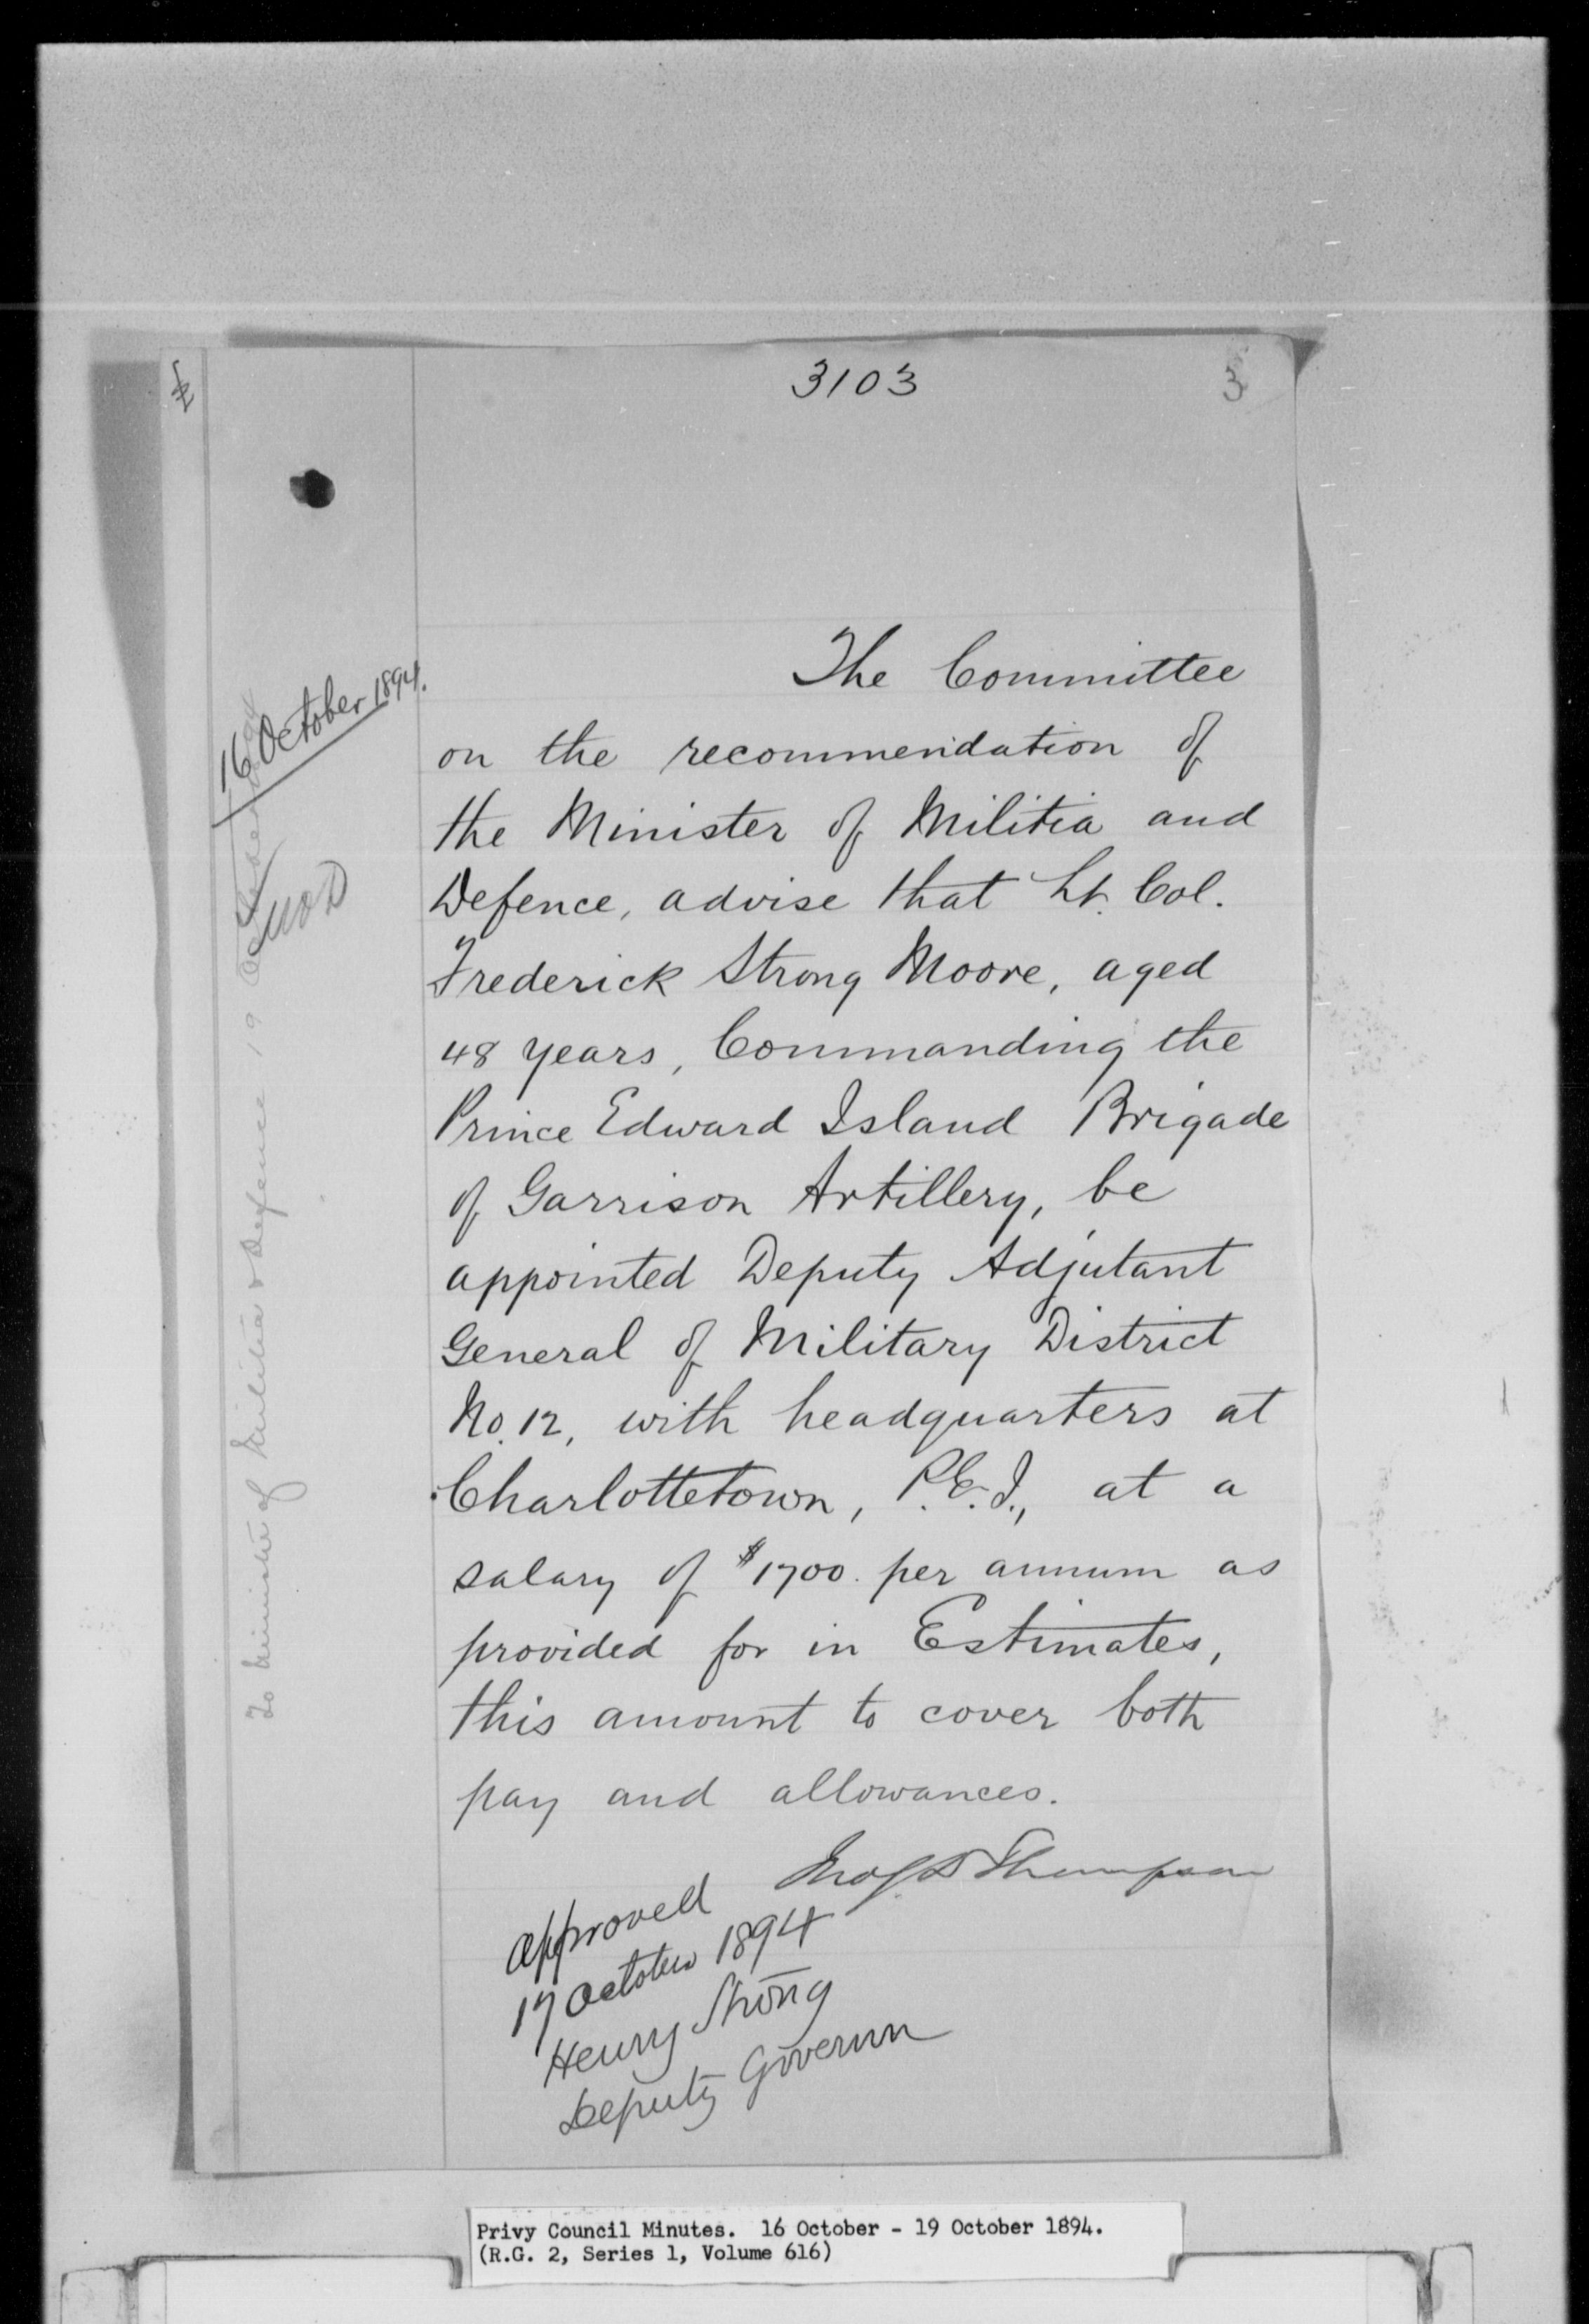 3103
3
16 October 1894.
M & D
To Minister of Militia & Defence 19 October 94
The Committee
on the recommendation of
the Minister of Militia and
Defence, advise that Lt. Col.
Frederick Strong Moore, aged
48 years, Commanding the
Prince Edward Island Brigade
of Garrison Artillery, be
appointed Deputy Adjutant
General of Military District
No. 12, with headquarters at
Charlottetown, P.E.I., at a
salary of $1700. per annum as
provided for in Estimates,
this amount to cover both
pay and allowances.
Jno S D Thompson
approved
17 October 1894
Henry Strong
Deputy Governor
Privy Council Minutes. 16 October - 19 October 1894.
(R.G. 2, Series 1, Volume 616)